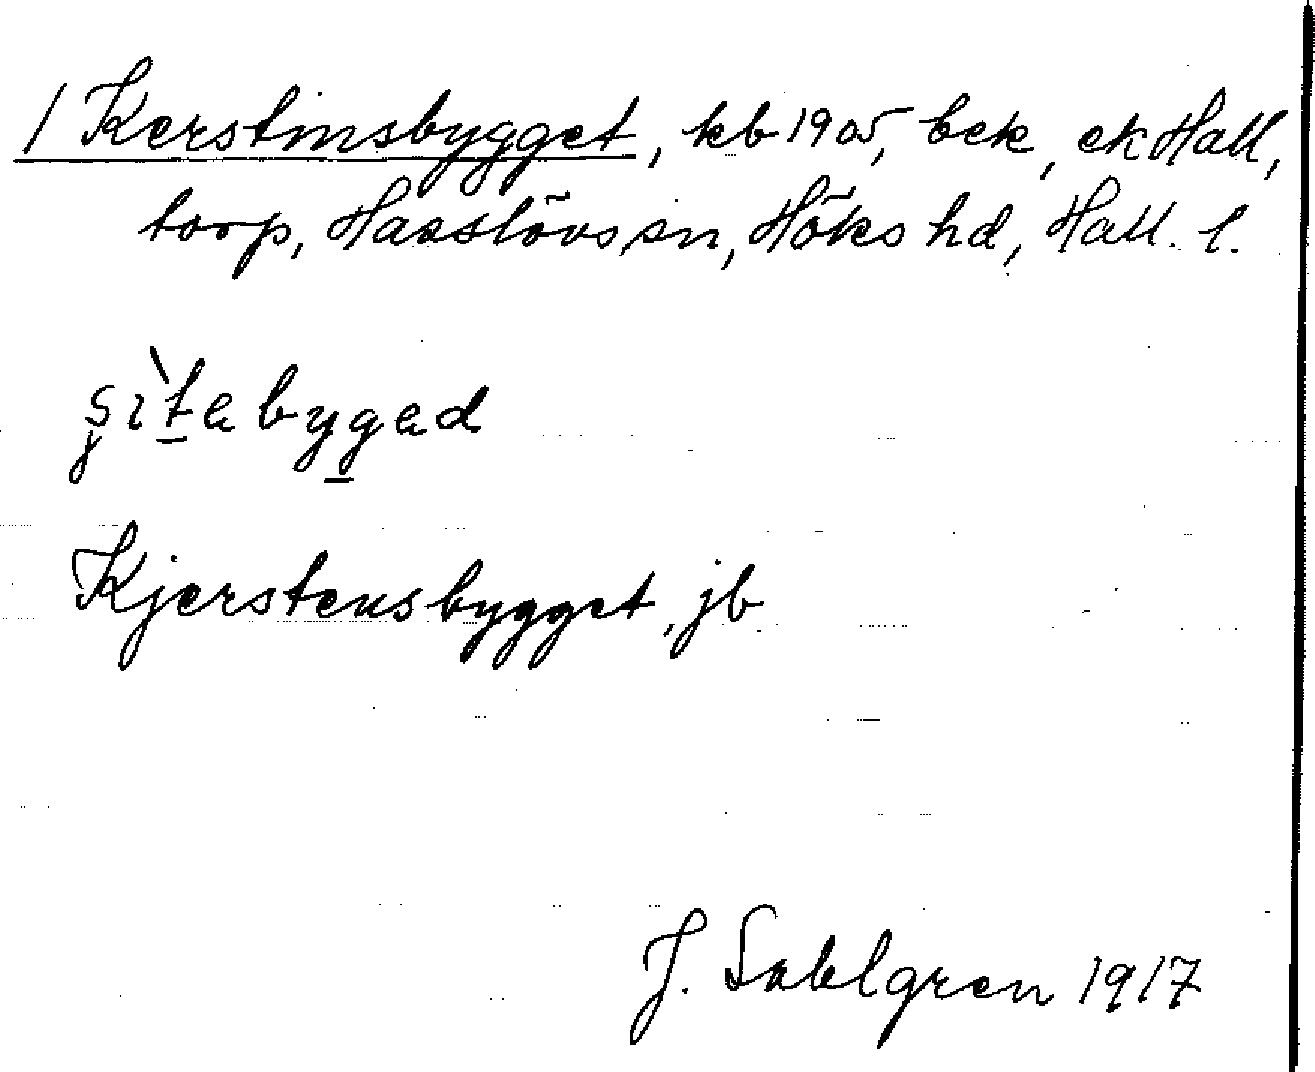 / Kerstinsbygget, kb 1905, bek, ek Hall,
torp, Hasslövs sn, Höks hd, Hall. l.
Kjerstensbygget, jb
J. Sahlgren 1917